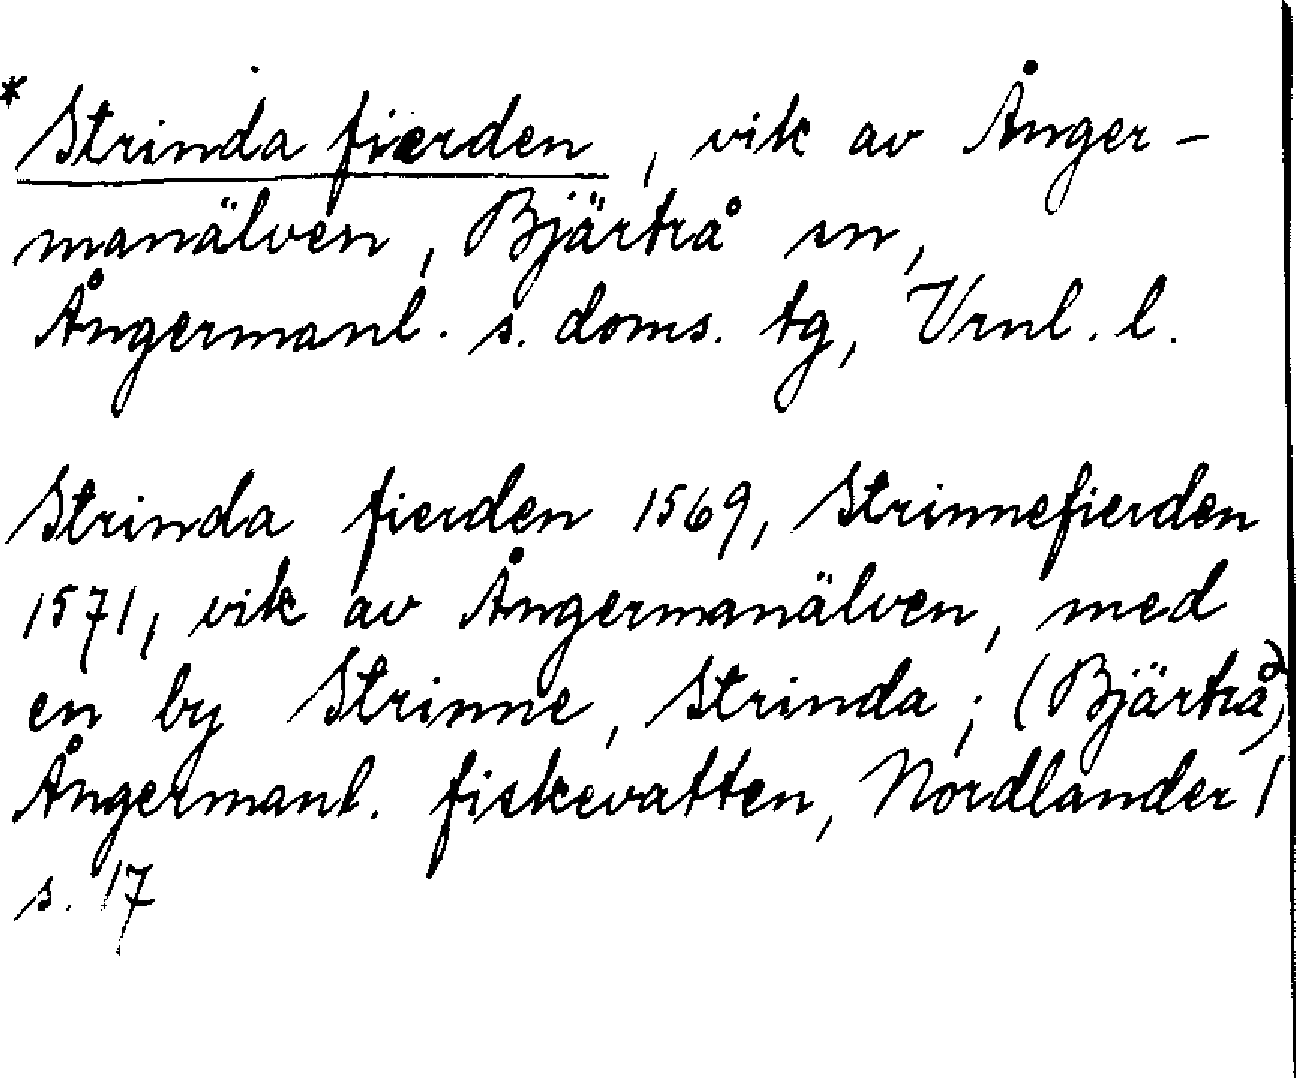 * Strinda fierden, vik av Ånger-
manälven, Bjärtrå sn,
Ångermanl. s. doms. tg, Vrnl. l.
Strinda fierden 1569, Strinnefierden
1571, vik av Ångermanälven, med
en by Strinne, Strinda; (Bjärtrå)
Ångermanl. fiskevatten, Nordlander 1
s. 17